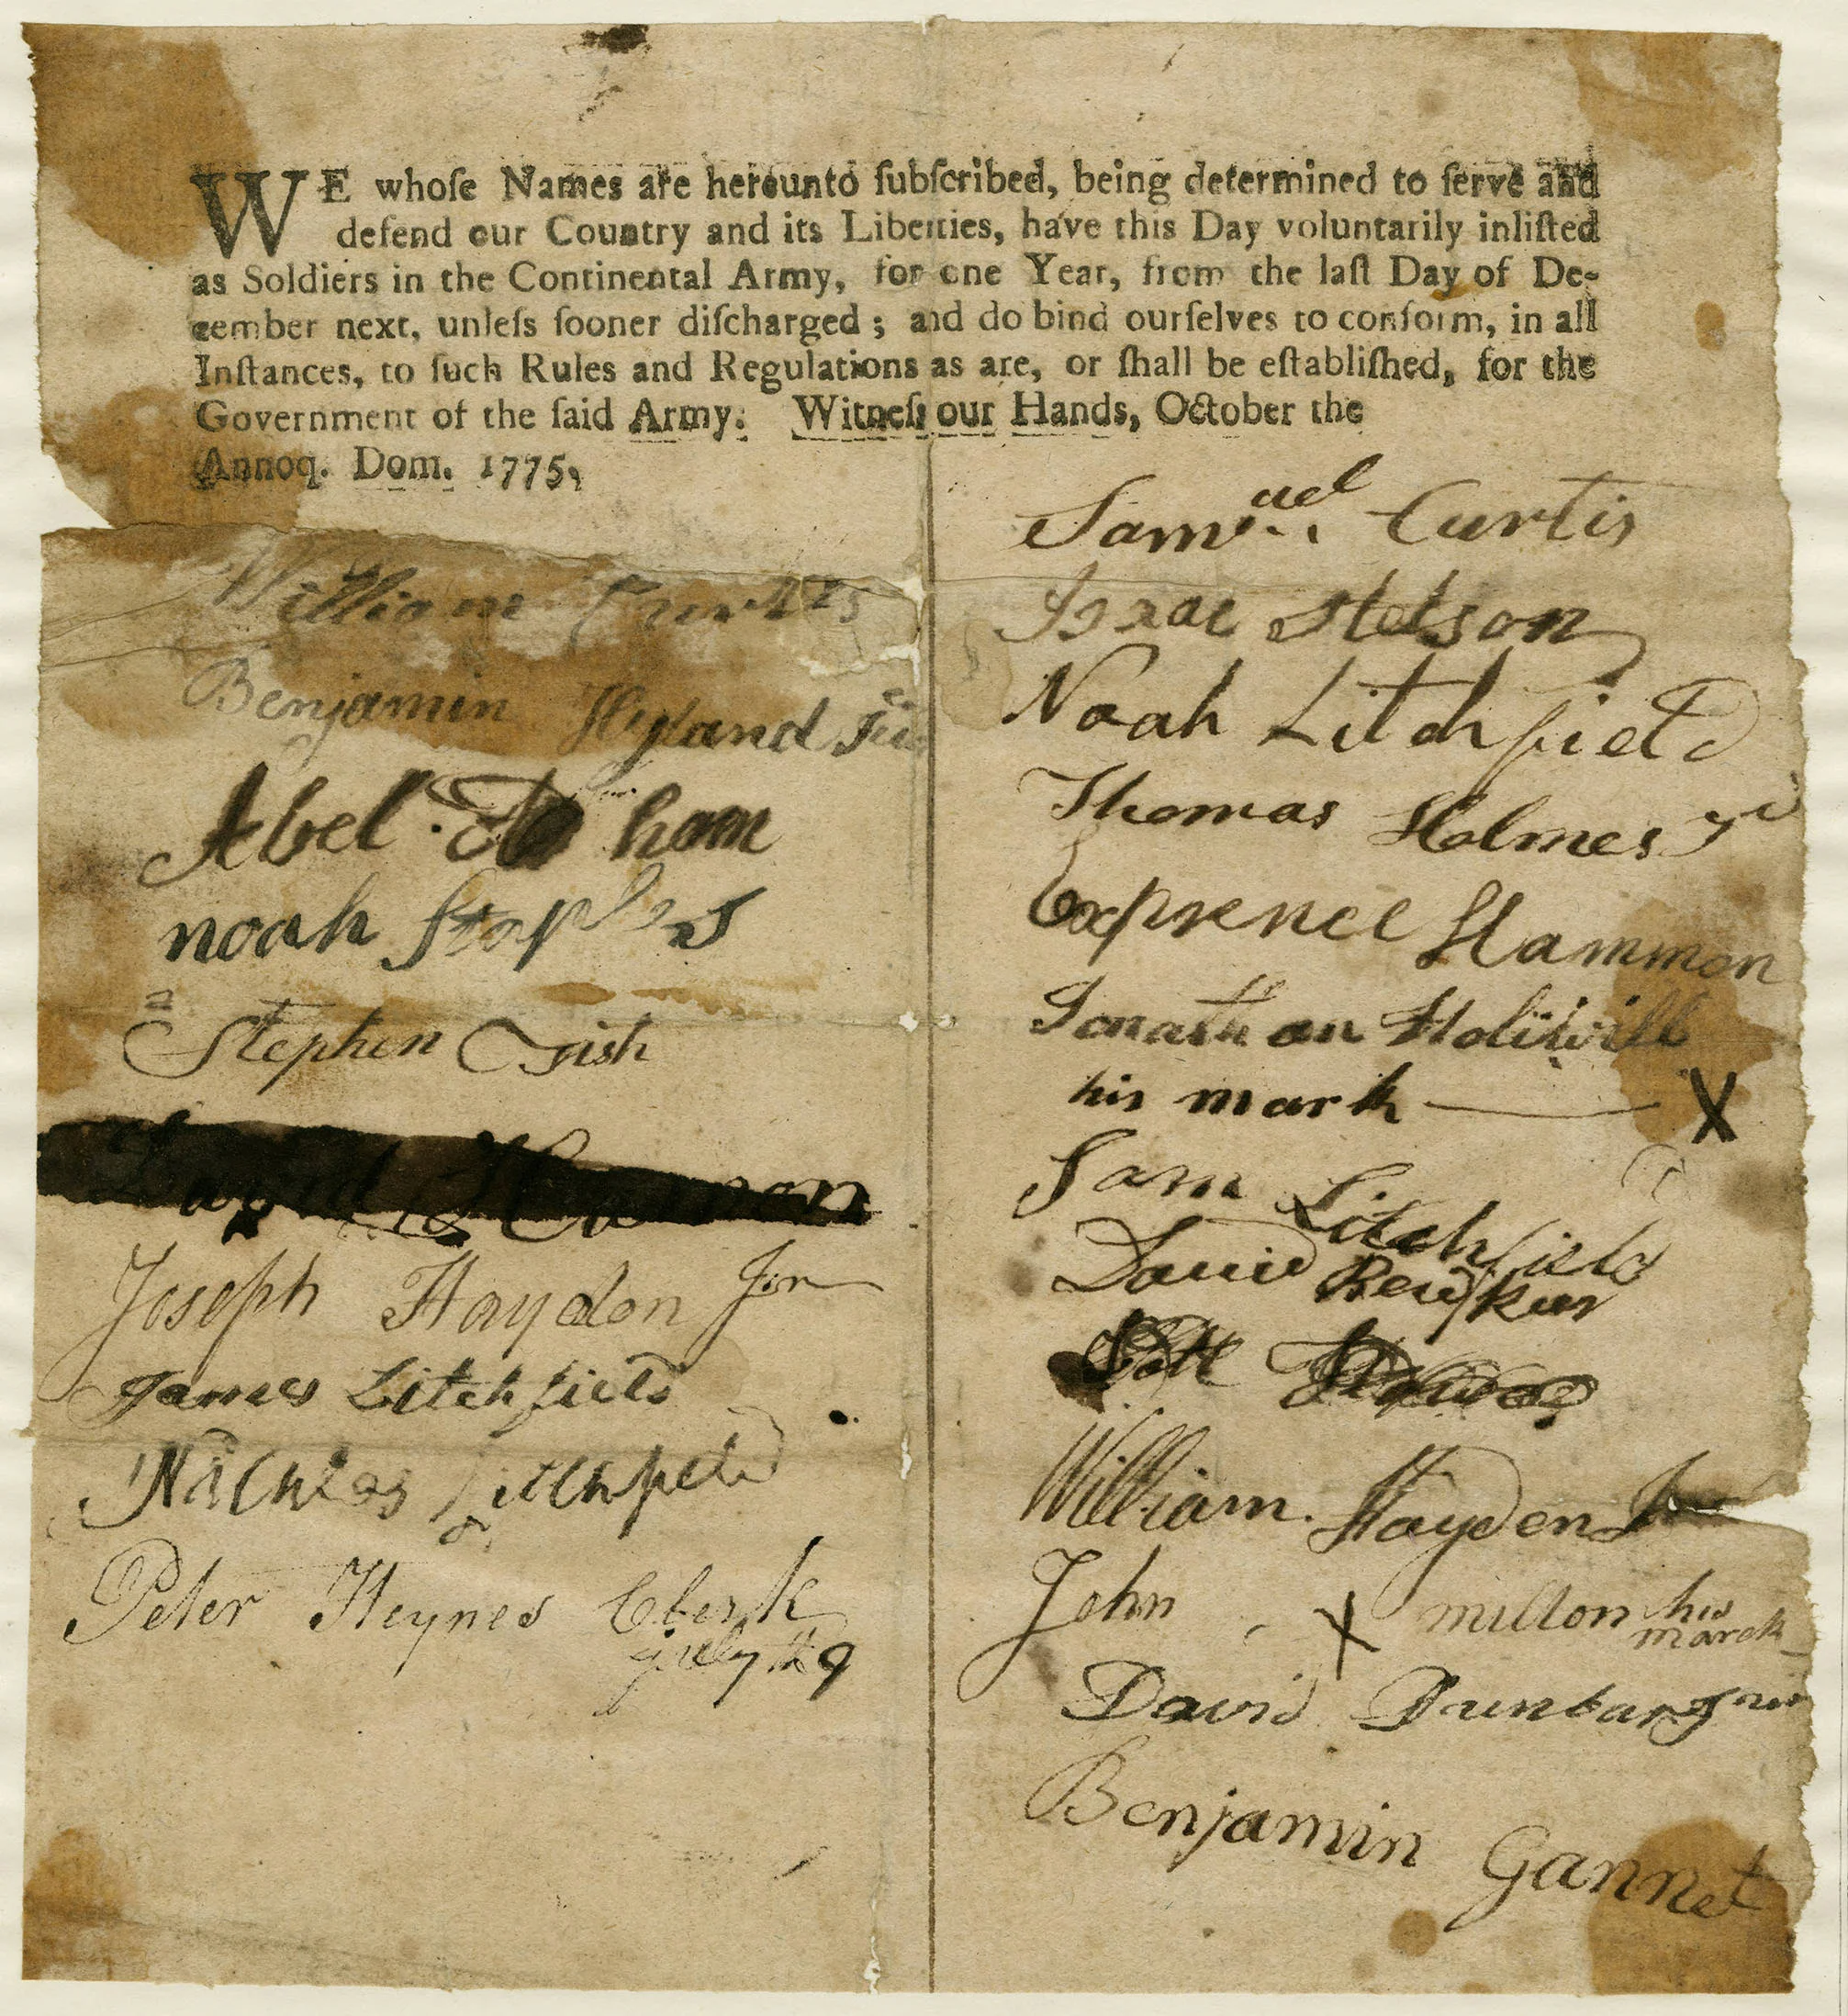 WE whoſe Names are hereunto ſubſcribed, being determined to ſerve and
defend our Country and its Liberties, have this Day voluntarily inliſted
as Soldiers in the Continental Army, for one Year, from the laſt Day of De-
cember next, unleſs ſooner diſcharged; and do bind ourſelves to conform, in all
Inſtances, to ſuch Rules and Regulations as are, or ſhall be eſtabliſhed, for the
Government of the ſaid Army. Witneſs our Hands, October the
Annoq. Dom. 1775.
William Curtis
Benjamin Hyland Jur
Abel
noah ſtaples
Stephen
Joseph Haydon Jnr
James Litchfield
Litchfield
Peter Heynes Clerk
Samuel Curtis
Isaac Stetson
Noah Litchfield
Thomas Holmes
Exprence Hammon
Jonathan
his mark X
Sam Litchfield
David
William Hayden Jnr
John X millon his
marck
David Dunbar
Benjamin Gannet